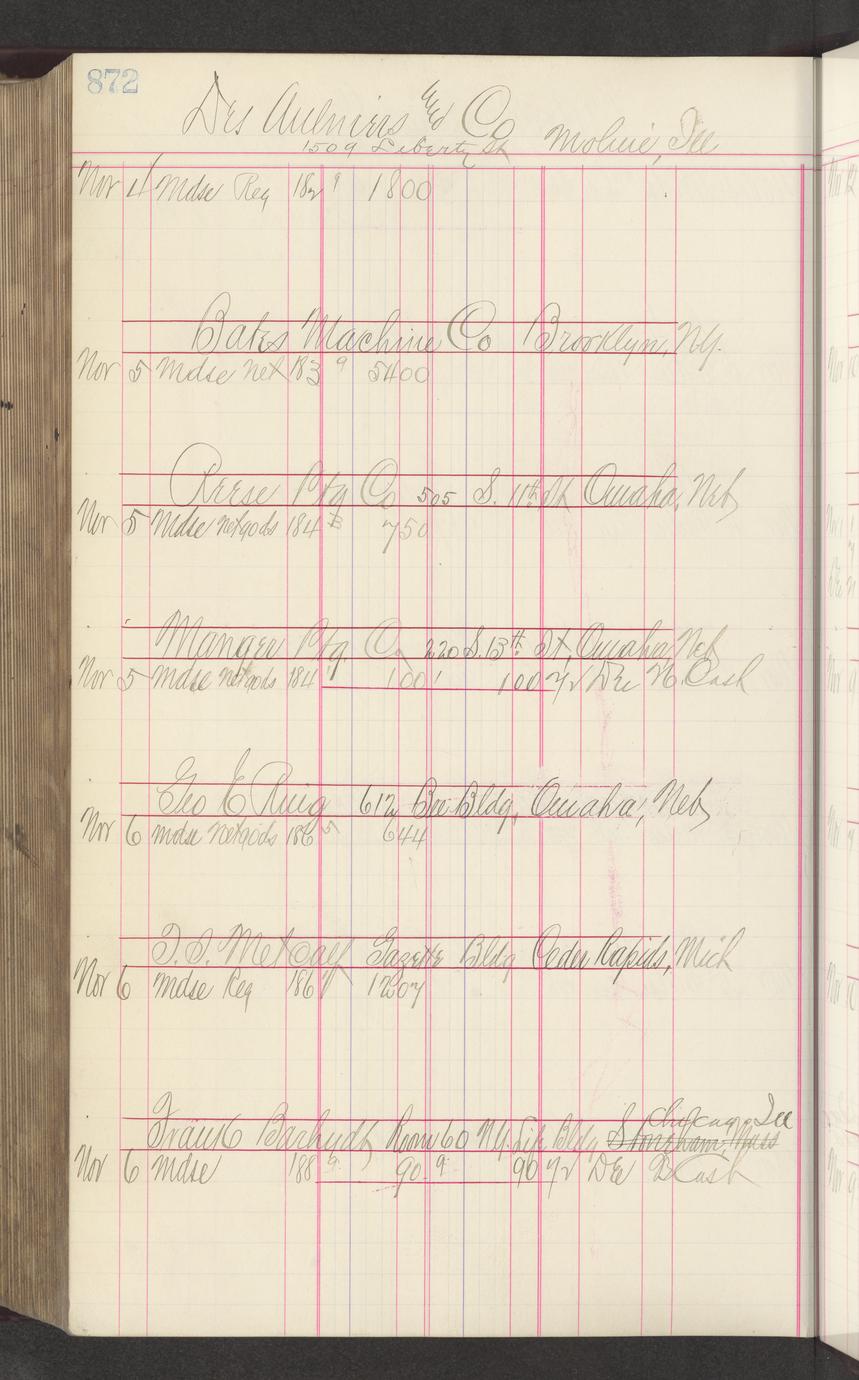 872
Des Aulniers and Co Moline, Ill
1509 Liberty St
Nov 4 Mdse Reg 182 9 1800
Bates Machine Co Brooklyn, N.Y.
Nov 5 Mdse net 183 9 5400
Reese Ptg Co 505 S. 11th St Omaha, Neb
Nov 5 Mdse net gods 184 750
Manger Ptg Co 220 S. 13th St, Omaha Neb
Nov 5 Mdse net gods 184 100 100 72 Dec Cash
Geo E 612 Bee Bldg, Omaha, Neb
Nov 6 mdse net gods 186 5 644
T. S. Metcalf Gazette Bldg Ceder Rapids, Mich
Nov 6 Mdse Reg 186 1207
Chicago Ill
Frank Room 60 N.Y. Life Bldg
Nov 6 Mdse 188 9 90 9 90 72 De 2 Cash